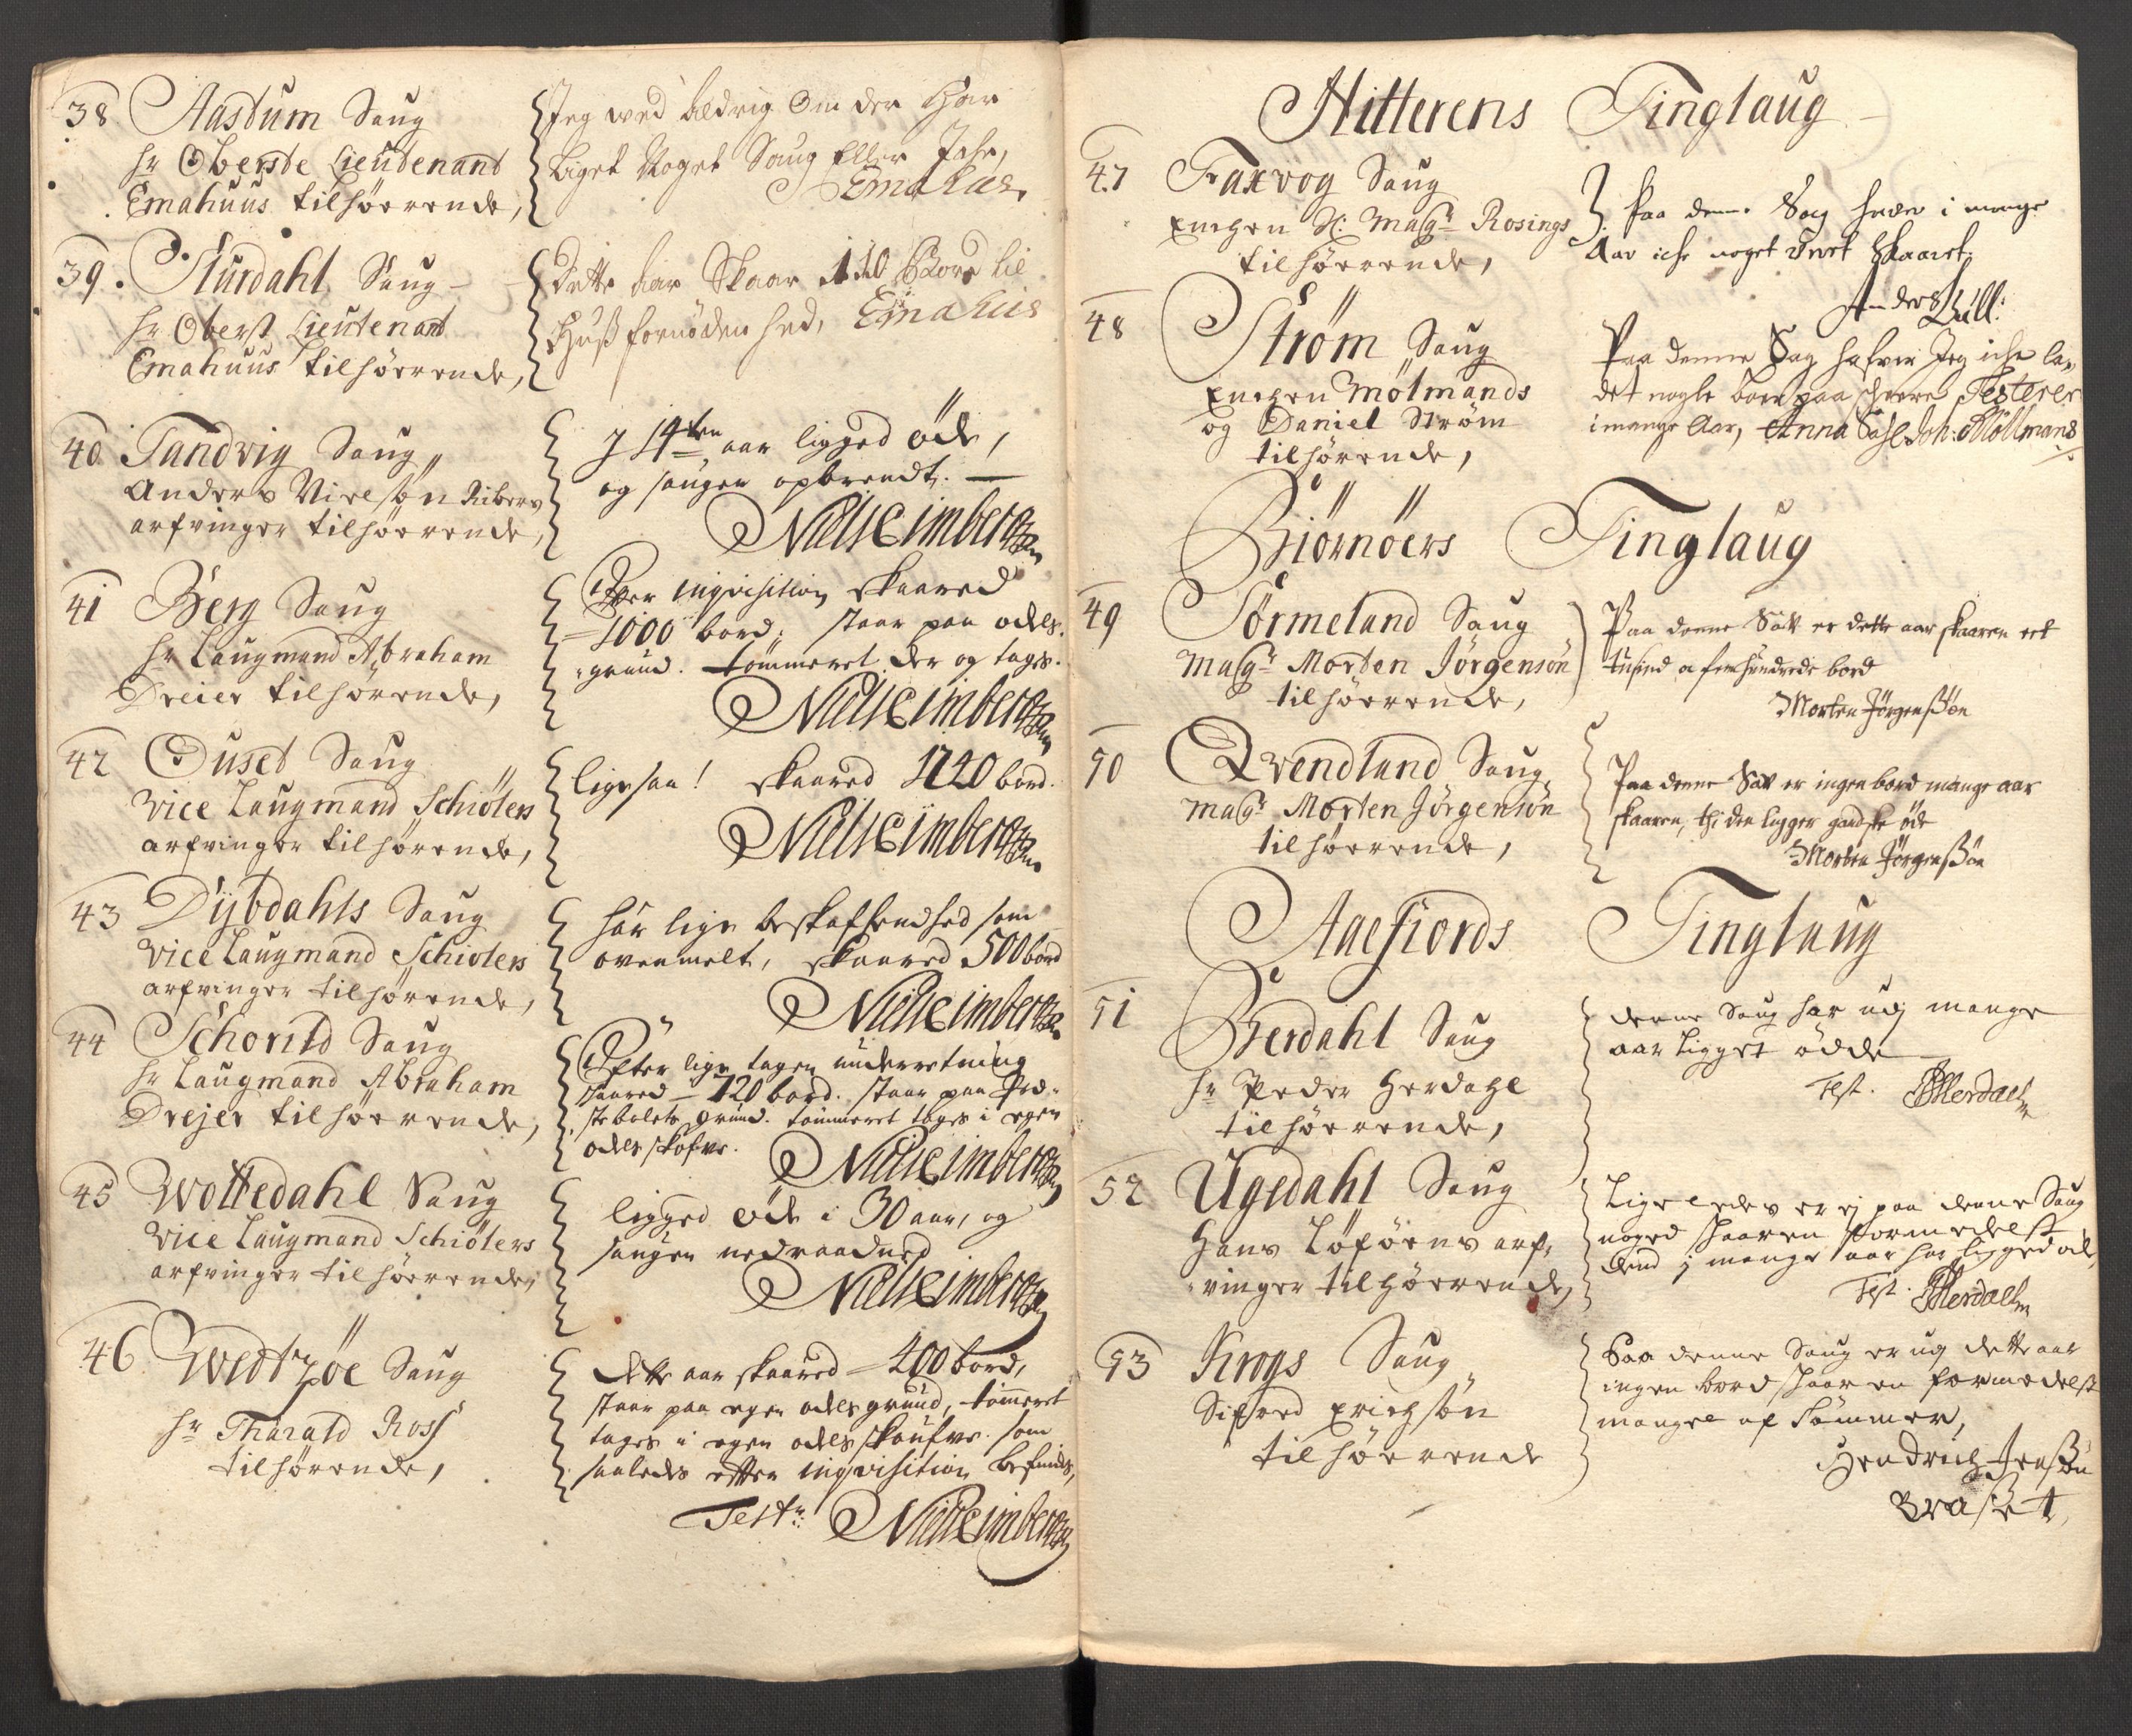 38 Aastum Saug
hr Oberste Lieutenant
Emahuus tilhørende,
Jeg wed aldrig Om der Har
liget Noget Saug Eller Jahr,
Emahus
39. Sturdahl Saug
hr Oberst Lieutenant
Emahuus tilhørende,
Dette har Skaar 110 Bord til
Huus fornødenhed, Emahus
40. Tandvig Saug
Anders Nielsøn Ribers
arfvinger tilhørende,
J 14ten aar ligged øde,
og saugen opbrendt.
Niels Eimbertsen
41 Berg Saug
hr Laugmand Abraham
Dreier tilhørende,
Efter inqvisition skaared
1000 bord; staar paa odels
grund. tømmeret der og tages.
Niels Eimbertsen
42 Ouset Saug
Vice Laugmand Schiølers
arfvinger tilhørende,
ligesaa! skaared 1720 bord.
Niels Eimbertsen
43 Dybdahls Saug
Vice Laugmand Schiølers
arfvinger tilhørende,
har lige beskaffendhed som
ovenmelt, skaared 500 bord
Niels Eimbertsen
44 Schorild Saug
hr Laugmand Abraham
Drejer tilhørende,
Efter lige tagen underretning
skaared 120 bord. staar paa
grund. tømmeret tages i egen
odels skofve.
Niels Eimbertsen
45 Wottedahl Saug
Vice Laugmand Schiølers
arfvinger tilhørende,
ligged øde i 30 aar, og
saugen nedraadned
Niels Eimbertsen
46 Wedtzøe Saug
hr Tharald Ross
tilhørende,
dette aar skaared 400 bord,
staar paa egen odels grund, tømeret
tages i egen odels skoufve. som
saaledes efter inqvisition befindes,
Test: Niels Eimbertsen
Hitterens Tinglaug
47 Faxvog Saug
Enchen Sl: Magr Rosings
tilhørende,
Paa denne Sag haver i mange
Aar iche noget veret skaaret.
Anders Lull:
48 Strøm Saug
Enchen Mølmands
og Daniel Strøm
tilhørende,
Paa denne Sag hafver Jeg iche la,,
det nogle bord paa schere Testerer
i mange Aar, Anna Sahl Joh: Møllmans
Biørnøers Tinglaug
49 Sørmeland Saug
Magr Morten Jørgensøn
tilhørende,
Paa denne Sau er dette aar skaaren eet
tusend a fem hundrede bord
Morten Jørgensøn
50 Qvendland Saug,
Magr Morten Jørgensøn
tilhørende,
Paa denne Sau er ingen bord mange aar
skaaren, thi den ligger gandske øde
Morten Jørgensøn
Aaefiords Tinglaug
51 Herdahl Saug
hr Peder Herdahl
tilhørende,
denne Saug har udj mange
aar ligget ødde
Test. PHerdaell
52 Ugedahl Saug
Hans Løførens arf,
vinger tilhørende,
Ligeledes er ej paa denne Saug
noged skaaren formedelst
dend j mange aar har ligged øde,
Test. PHerdaell
53 Krogs Saug
Sifred Erichsøn
tilhørende
Paa denne Saug er udj dette aar
ingen bord skaaren formedelst
mangel af Tømmer,
Hendrich Jensøn
Braset